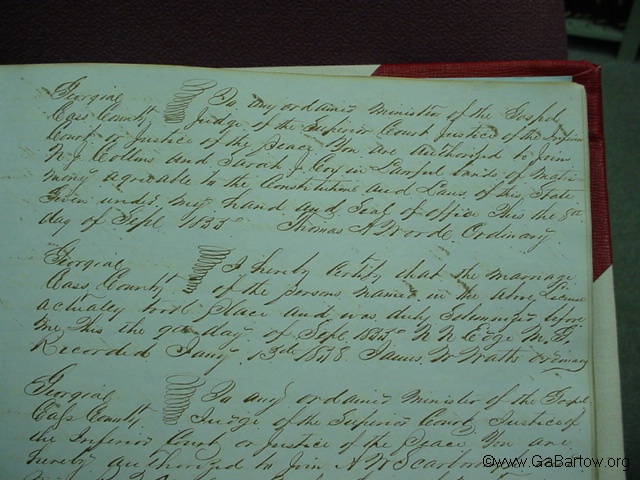 Georgia
Cass County To any ordained minister of the Gospel
Judge of the Superior Court Justice of the Inferior
Court or Justice of the peace You are authorized to Join
N J. Collins and Sarah J Cox in Lawful bands of Matri
mony agreeable to the Constitution and Laws of this State
Given under my hand and Seal of office This the 8th
day of Sept. 1855 Thomas A Word Ordinary
Georgia
Cass County I hereby Certify that the marriage
of the persons named in the above License
actually took place and was duly Solemnized before
me This the 9th day of Sept. 1855 N N Edge M. G.
Recorded Jany 13th 1858 James W Watts Ordinary
Georgia
Cass County To any ordained Minister of the Gospel
Judge of the Superior Court Justice of
the Inferior Court or Justice of the Peace You are
hereby authorized to Join A W Scarborough
©www.GaBartow.org